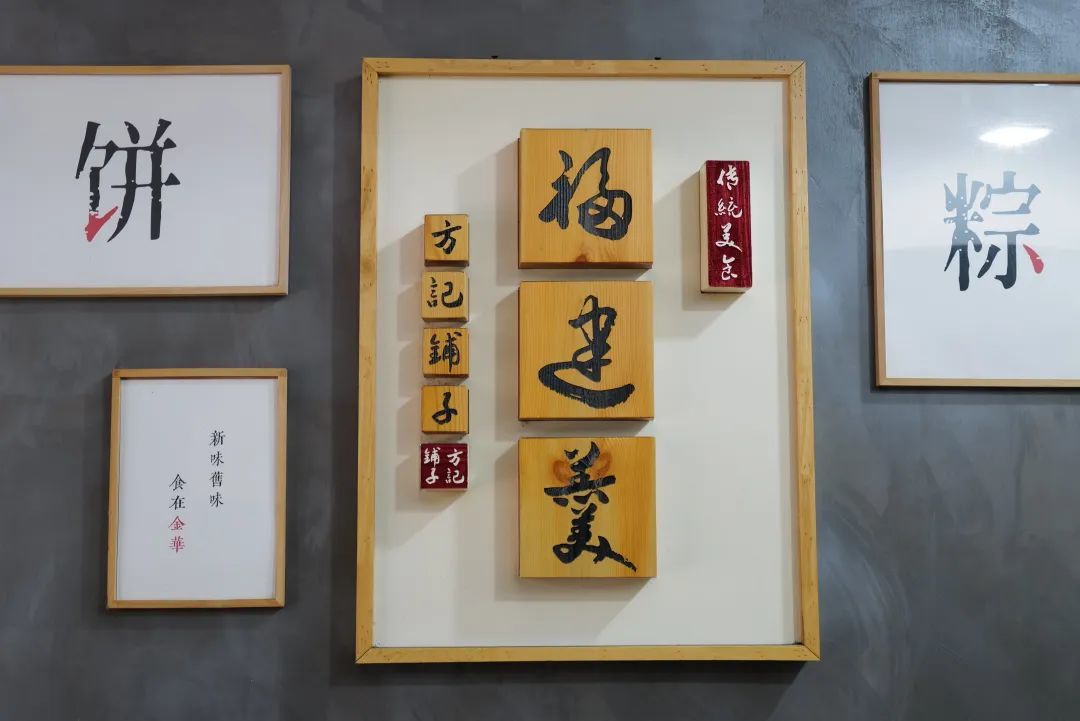 饼
新味舊味
食在金華
传統美食
福建羹
方記鋪子
方記
鋪子
粽